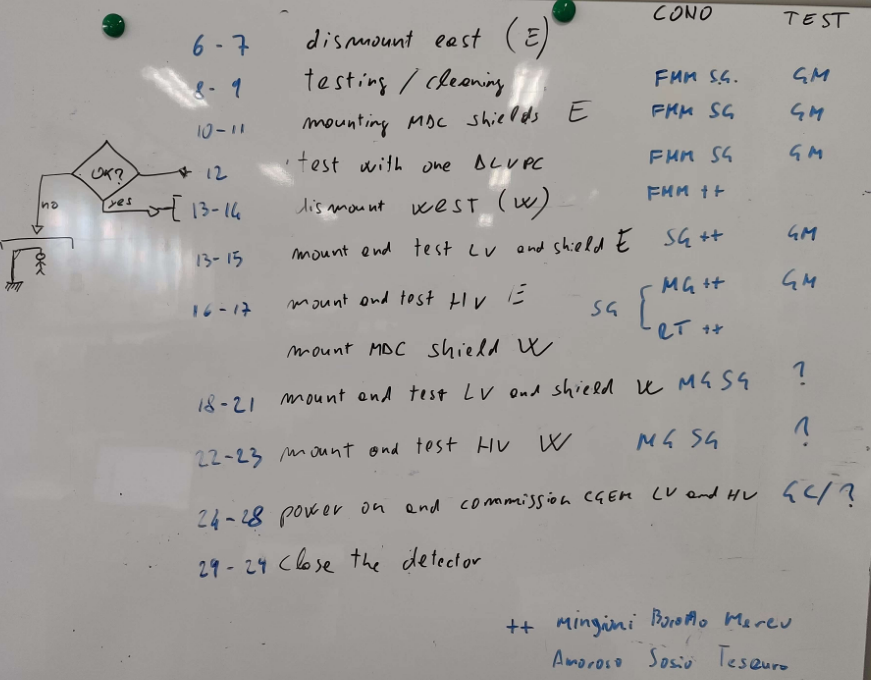 COND TEST
6-7 dismount east (E)
8-9 testing / cleaning FMM SG. GM
10-11 mounting MDC shields E FMM SG GM
OK? 12 test with one DLVPC FMM SG GM
no yes 13-14 dismount west (W) FMM ++
13-15 mount and test LV and shield E SG ++ GM
16-17 mount and test HV E SG MG ++ GM
RT ++
mount MDC shield W
18-21 mount and test LV and shield W MG SG ?
22-23 mount and test HV W MG SG ?
24-28 power on and commission CGEM LV and HV GC/?
29-29 Close the detector
++ Mingioni Mereu
Amoroso Sosio Tesauro